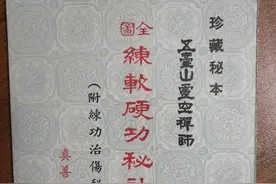 珍藏秘本
五臺山靈空禪師
全圖
練軟硬功秘
(附練功治傷秘
真善